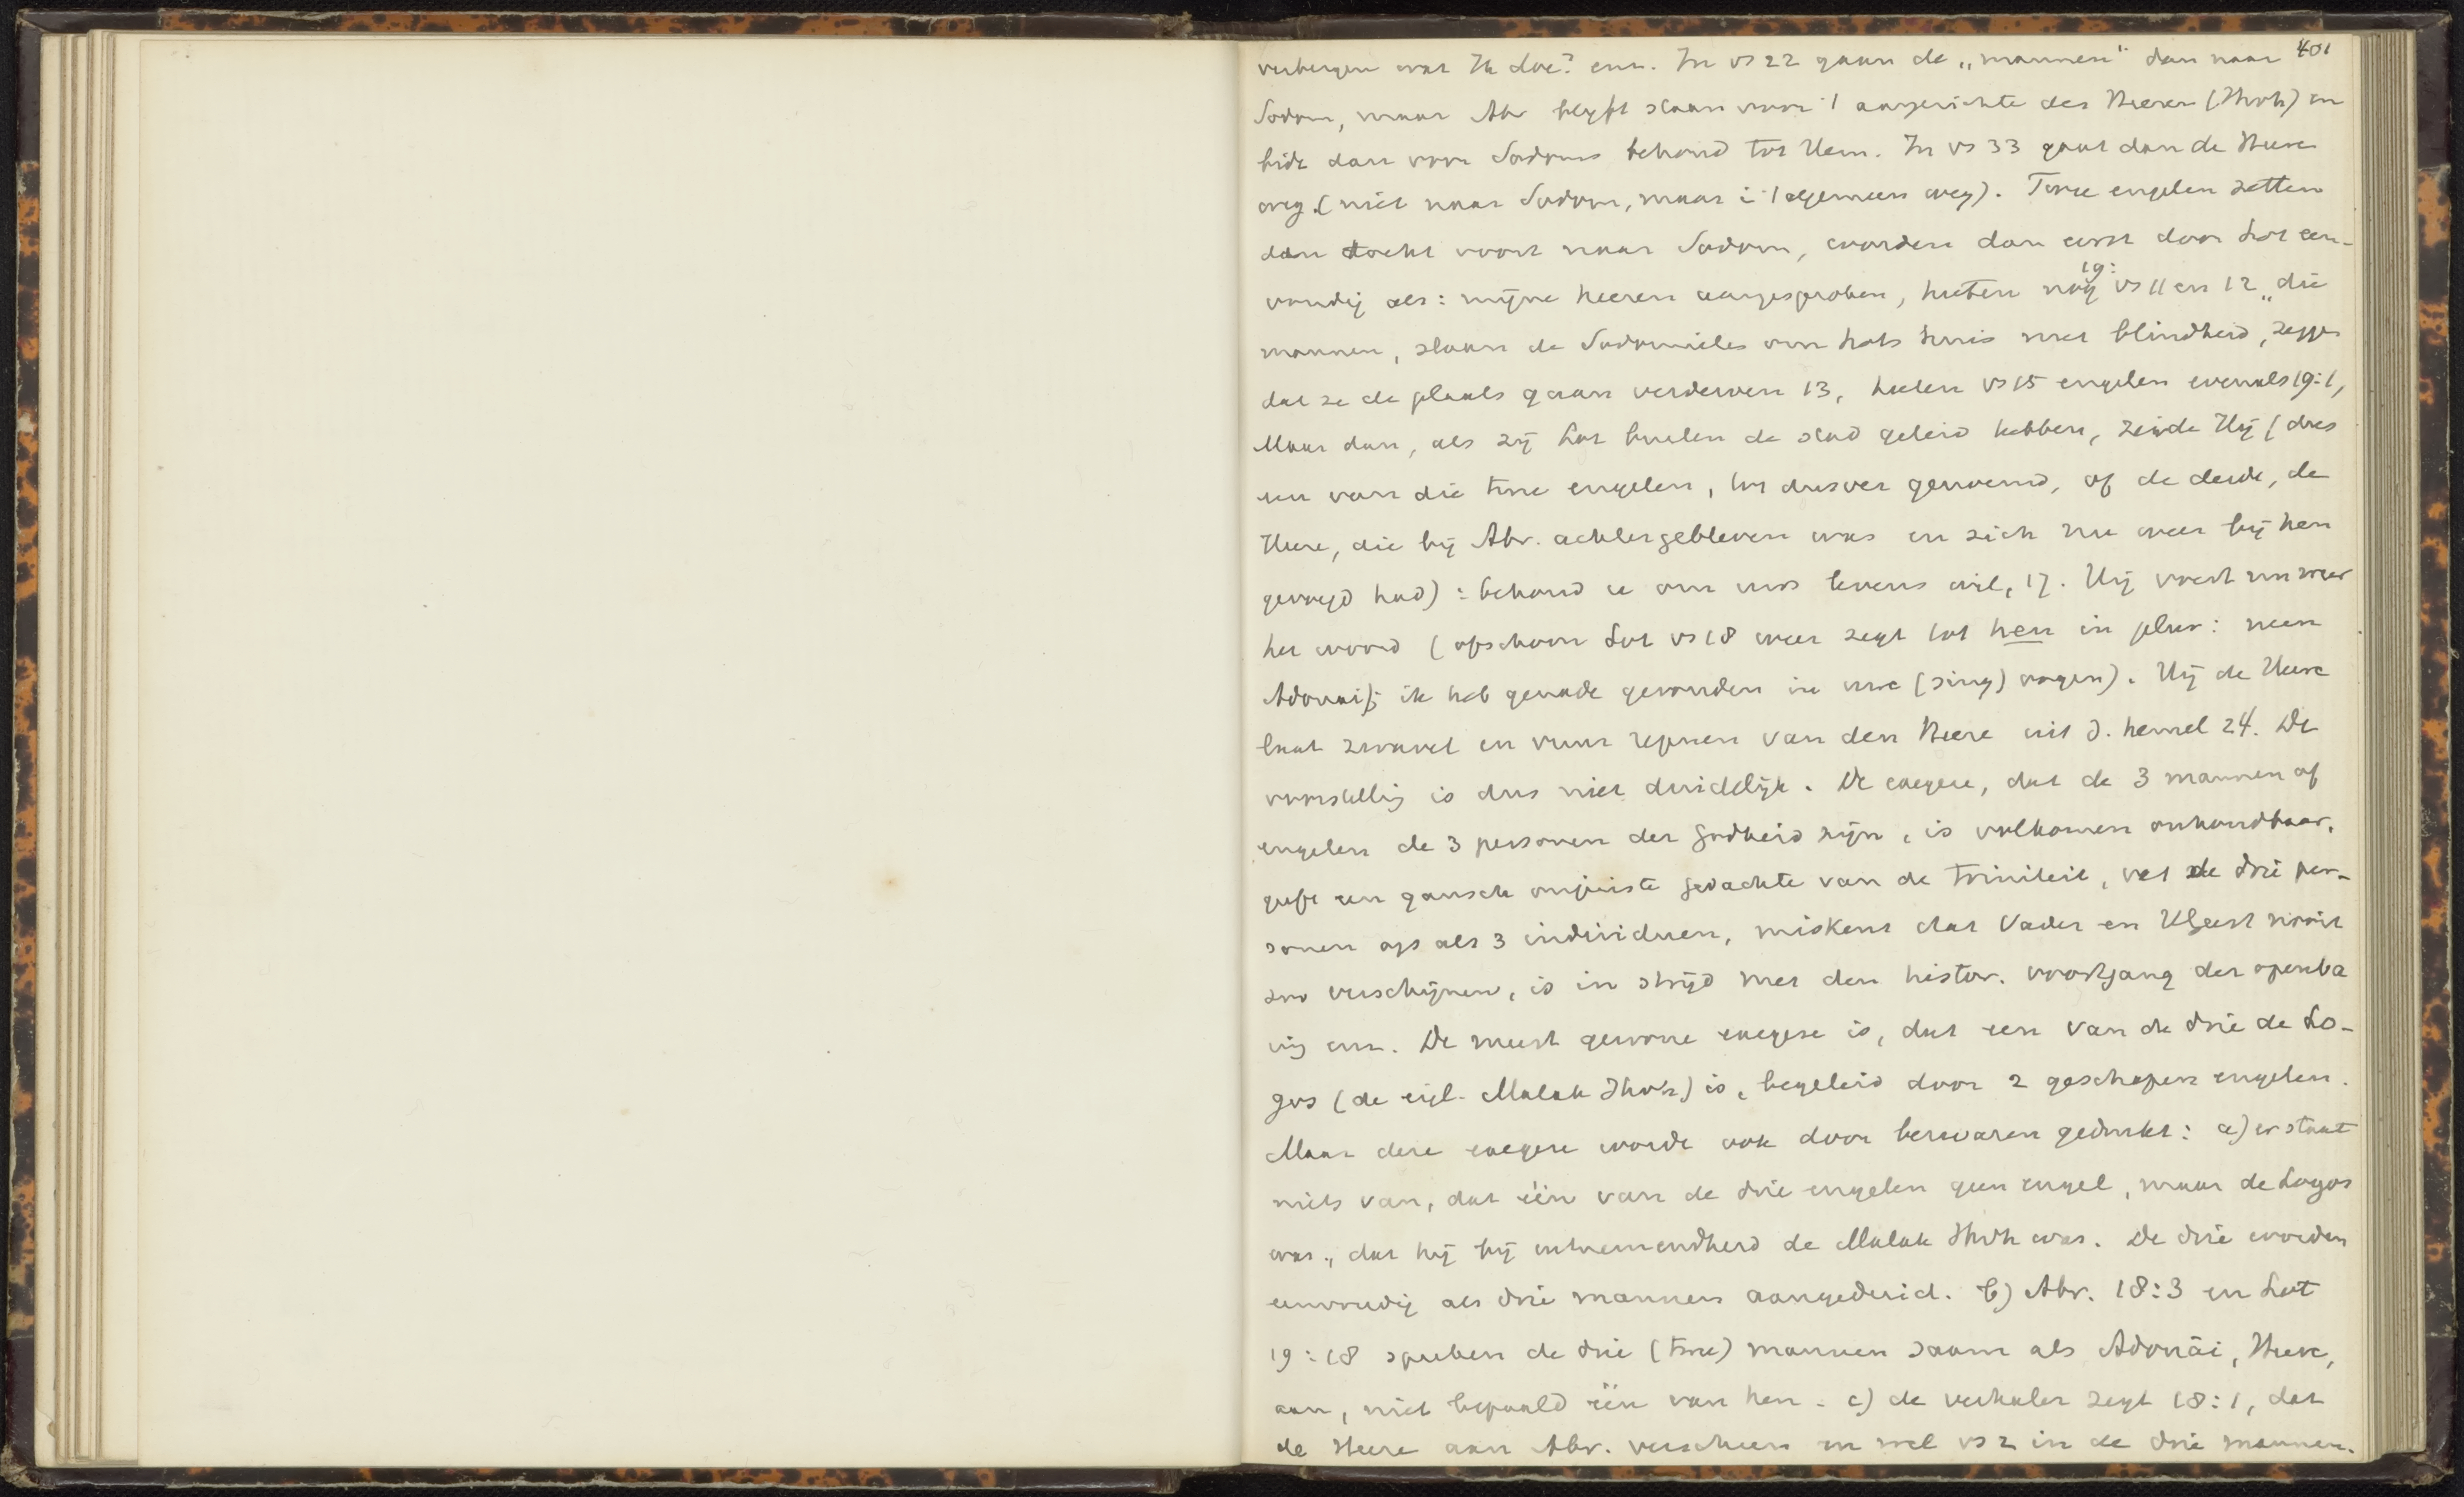 401
verbergen wat Ik doe? enz. In vs 22 gaan de „mannen" dan naar
Sodom, maar Abr blijft staan voor 't aangezichte des Heeren (Jhvh) en
bidt dan voor Sodoms behoud tot Hem. In vs 33 gaat dan de Heere
weg. (niet naar Sodom, maar i 't algemeen weg). Twee engelen zetten
dan tocht voort naar Sodom, worden dan eerst door Lot een-
voudig als: mijne heeren aangesproken, heeten nog 19: vs 11 en 12 „die
mannen, slaan de Sodomieten om Lots huis met blindheid, zeggen
dat ze de plaats gaan verderven 13, heeten vs 15 engelen evenals 19:1,
Maar dan, als zij Lot buiten de stad geleid hebben, zeide Hij (dus
een van die twee engelen, tot dusver genoemd, of de derde, de
Heere, die bij Abr. achtergebleven was en zich nu weer bij hen
gevoegd had): behoud u om uws levens wil, 17. Hij voert nu weer
het woord (ofschoon Lot vs 18 weer zegt tot hen in plur: neen
Adonai; ik heb genade gevonden in uwe (sing) oogen). Hij de Heere
laat zwavel en vuur regenen van den Heere uit d. hemel 24. De
voorstelling is dus niet duidelijk. De exegese, dat de 3 mannen of
engelen de 3 personen der Godheid zijn, is volkomen onhoudbaar,
geeft een gansch onjuiste gedachte van de triniteit, vat de drie per-
sonen op als 3 individuen, miskent dat Vader en HGeest nooit
zoo verschijnen, is in strijd met den histor. voortgang der openba
ring enz. De meest gewone exegese is, dat een van de drie de Lo-
gos (de eigl. Malak Jhvh) is, begeleid door 2 geschapen engelen.
Maar deze exegese wordt ook door bezwaren gedrukt: a) er staat
niets van, dat één van de drie engelen geen engel, maar de Logos
was, dat hij bij uitnemendheid de Malak Jhvh was. De drie worden
eenvoudig als drie mannen aangeduid. b) Abr. 18:3 en Lot
19:18 spreken de drie (twee) mannen saam als Adonāi, Heere,
aan, niet bepaald één van hen. c) de verhaler zegt 18:1, dat
de Heere aan Abr. verscheen en wel vs 2 in de drie mannen.